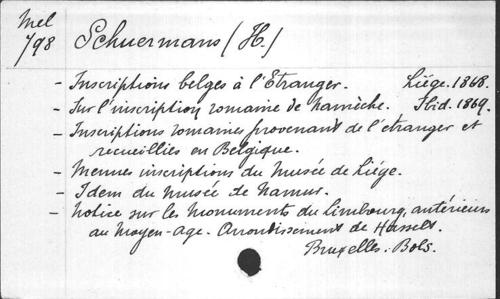 Mel
798
Schuermans (H.)
- Inscriptions belges à l'Etranger. Liége. 1868.
- Sur l'inscription romaine de Namêche. Ibid. 1869.
- Inscriptions romaines provenant de l'etranger et
recueillies en Belgique.
- Menues inscriptions du Musée de Liége.
- Idem du Musée de Namur.
- Notice sur les Monuments du Limbourg, antérieurs
au Moyen-age. Arrondissement de Hasselt.
Bruxelles. Bols.